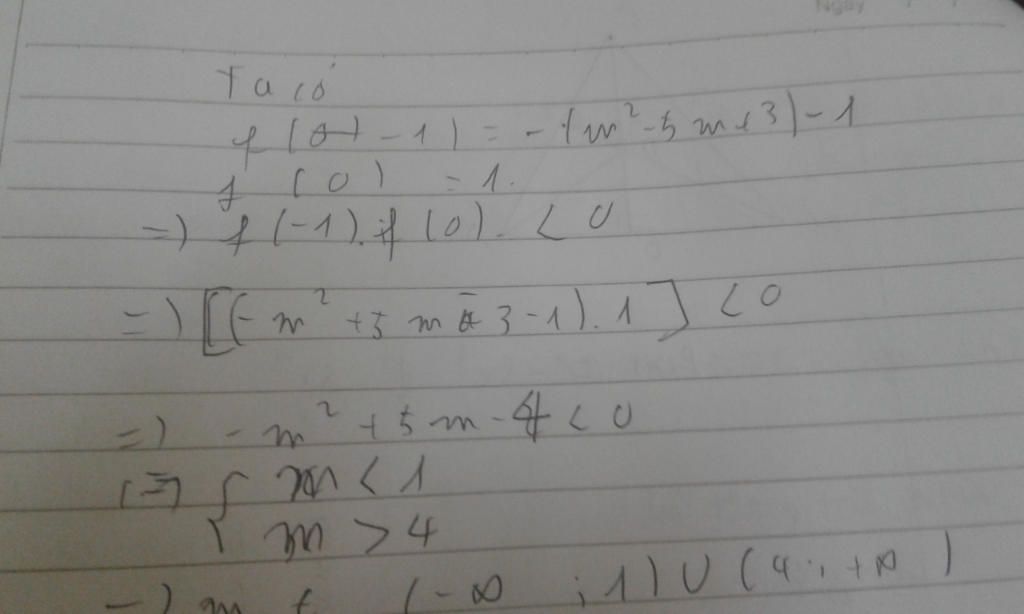 Ngày
Ta có
f(-1) = -(m²-5m+3)-1
f(0) = 1.
=) f(-1).f(0). < 0
=) [(-m²+5m-3-1).1] < 0
=) -m²+5m-4 < 0
(=) { m < 1
m > 4
=) m ∈ (-∞ ; 1) ∪ (4 ; +∞)